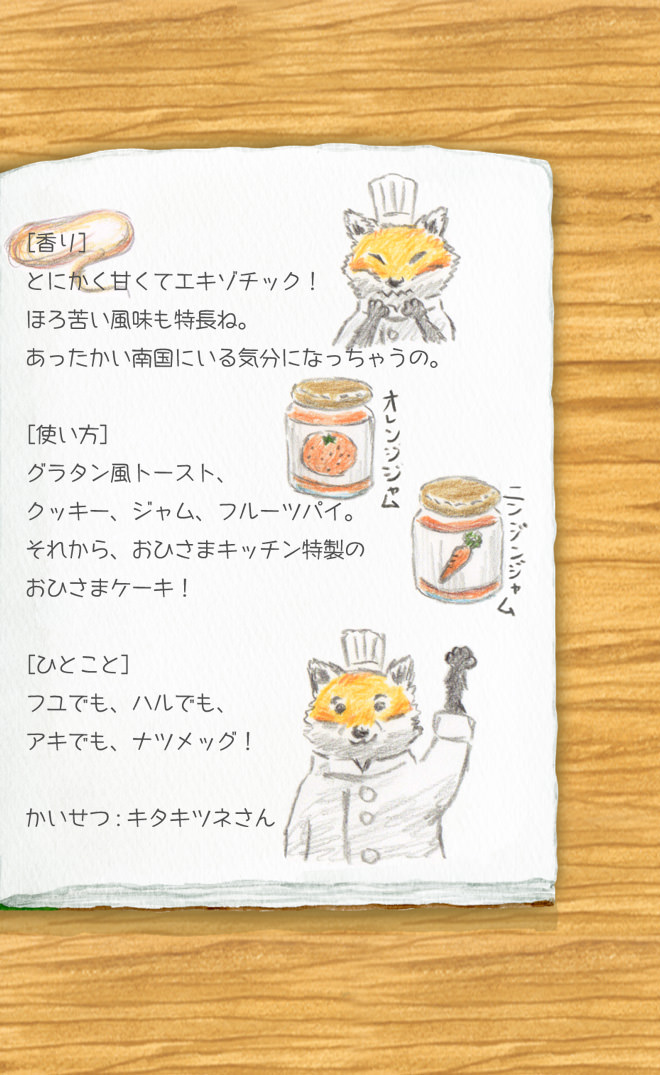 [香り]
とにかく甘くてエキゾチック！
ほろ苦い風味も特長ね。
あったかい南国にいる気分になっちゃうの。
オレンジジャム
[使い方]
グラタン風トースト、
クッキー、ジャム、フルーツパイ。
それから、おひさまキッチン特製の
おひさまケーキ！
ニンジンジャム
[ひとこと]
フユでも、ハルでも、
アキでも、ナツメッグ！
かいせつ：キタキツネさん